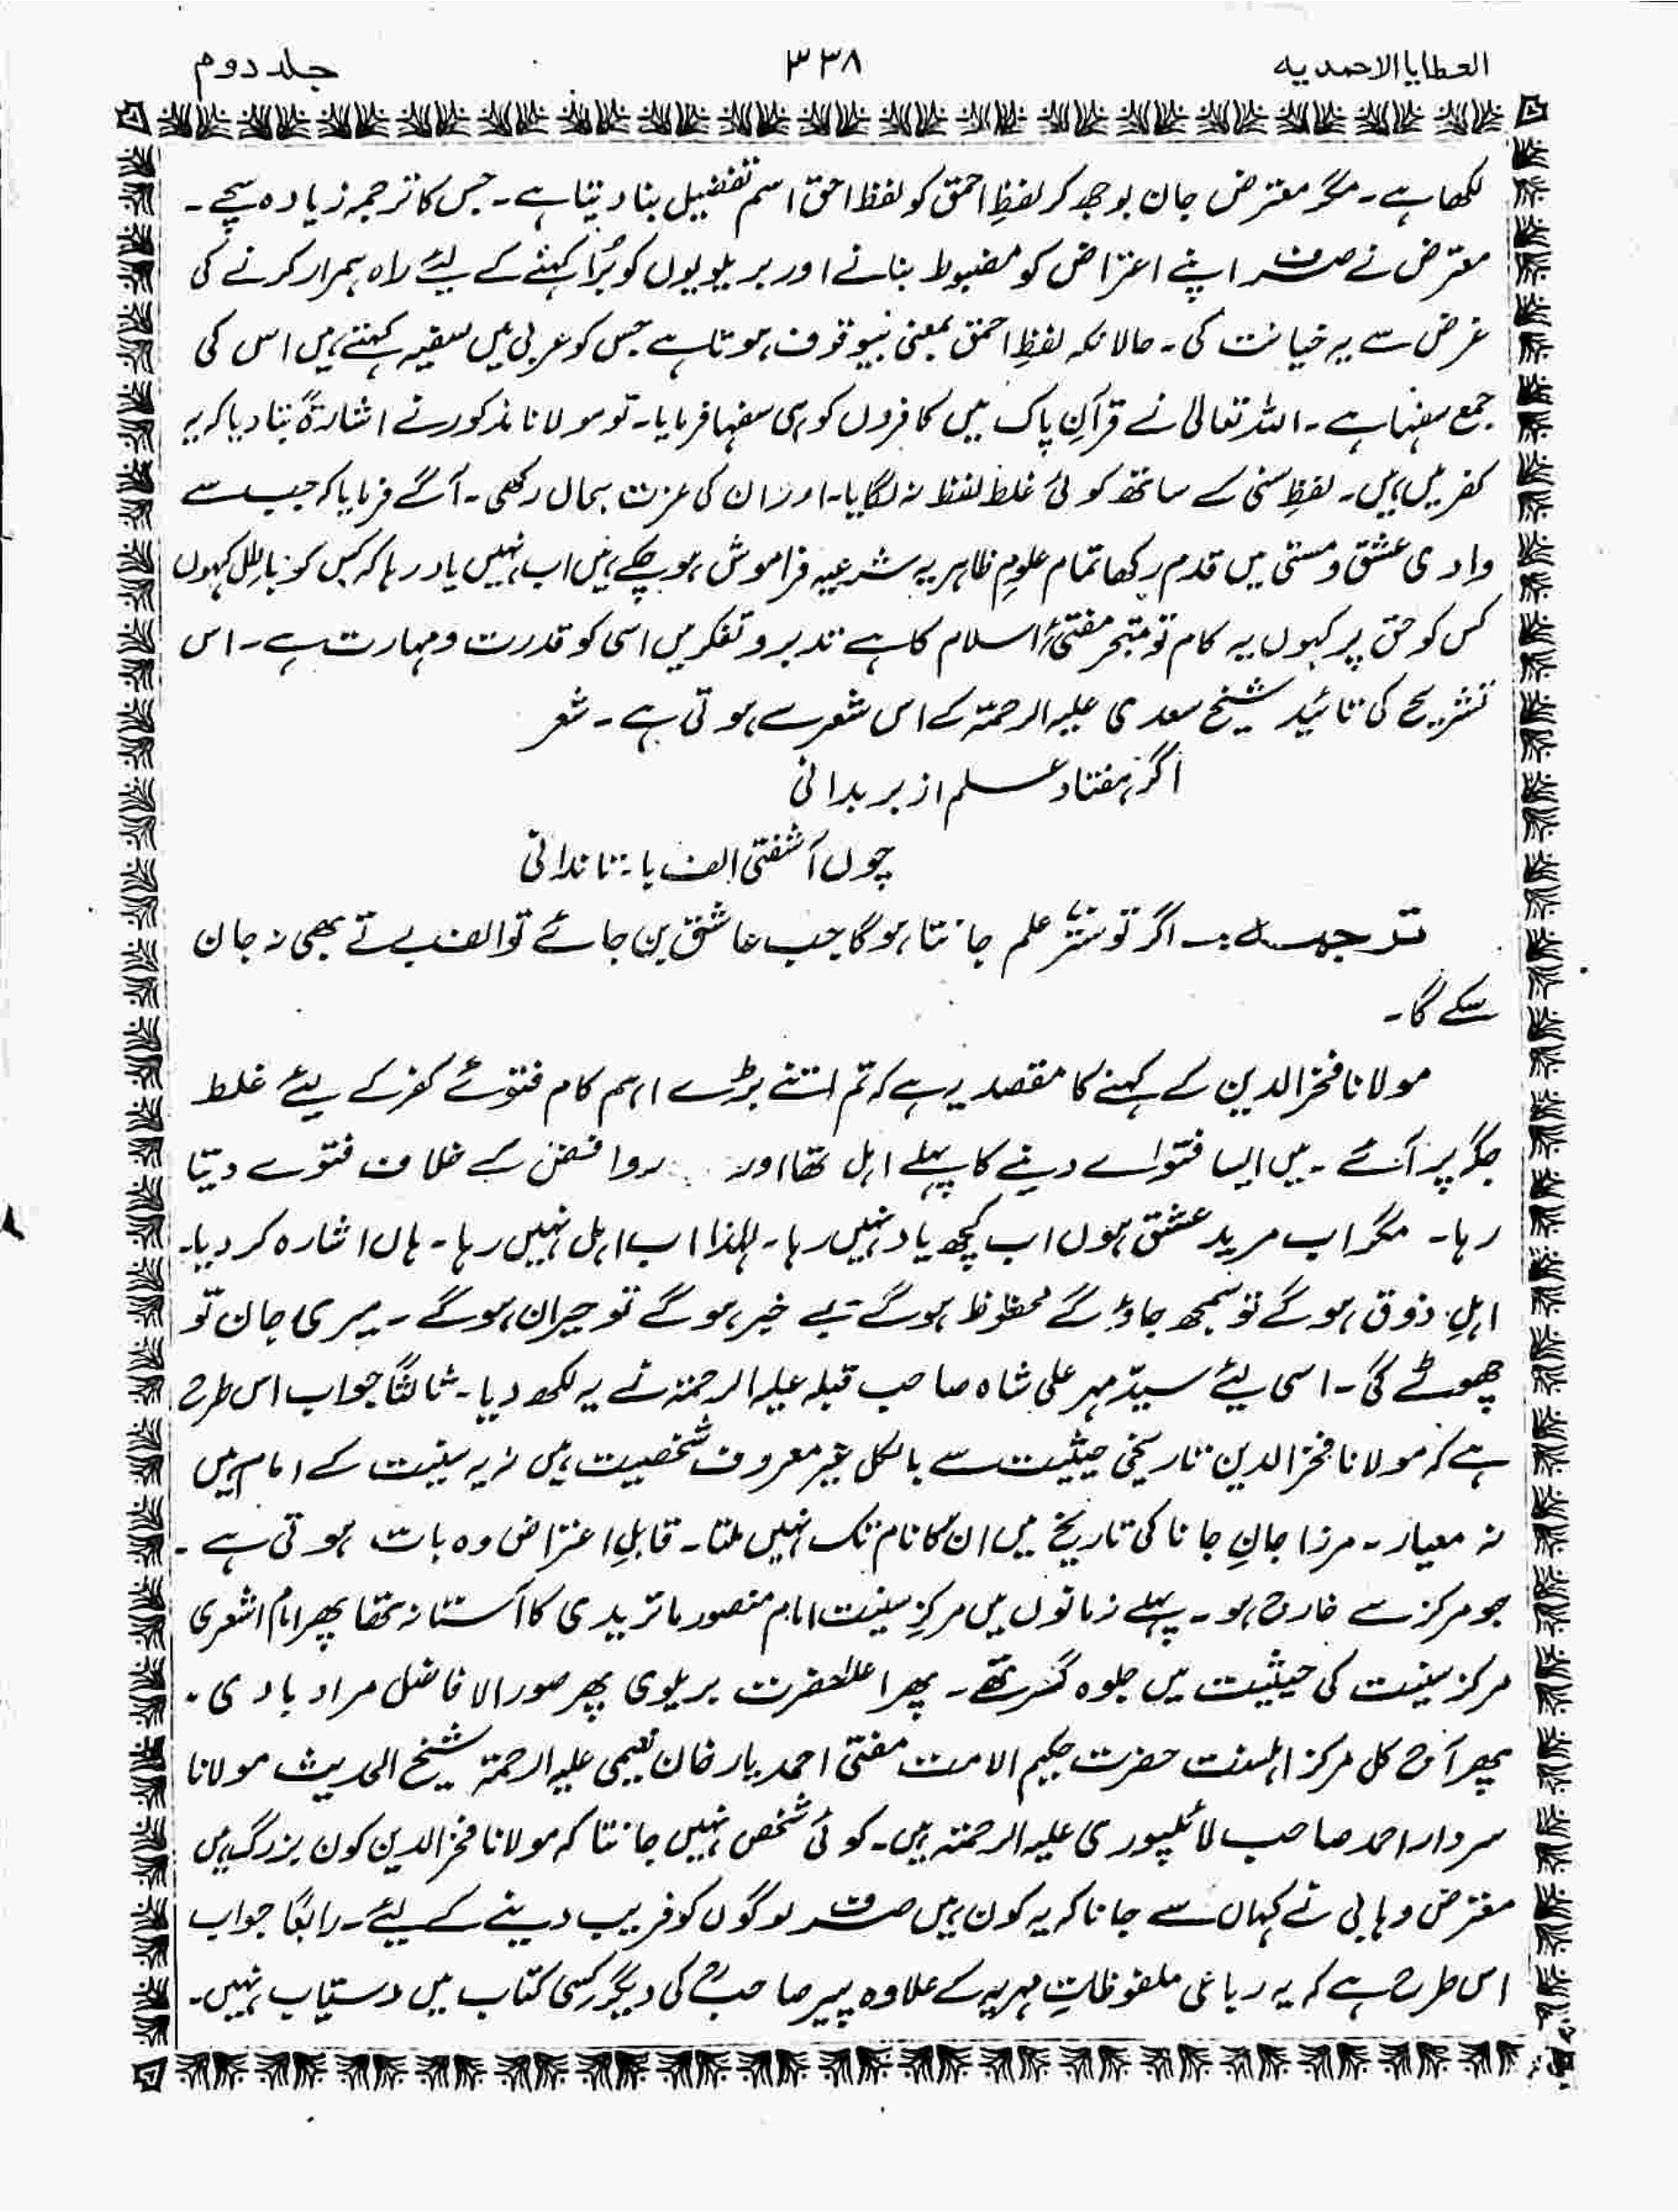 العطایا الاحمدیہ
۳۳۸
جلد دوم
لکھا ہے۔ مگر معترض جان بوجھ کر لفظِ احمق کو لفظ احق اسم تفضیل بنا دیتا ہے۔ جس کا ترجمہ زیادہ سچے۔
معترض نے صرف اپنے اعتراض کو مضبوط بنانے اور بریلویوں کو بُرا کہنے کے لیئے راہ ہموار کرنے کی
غرض سے یہ خیانت کی۔ حالانکہ لفظِ احمق بمعنی بیوقوف ہوتا ہے جس کو عربی میں سفیہ کہتے ہیں اس کی
جمع سفہا ہے۔ اللہ تعالیٰ نے قرآنِ پاک میں کافروں کو ہی سفہا فرمایا۔ تو مولانا مذکور نے اشارۃً بتا دیا کہ یہ
کفر میں ہیں۔ لفظِ سنی کے ساتھ کوئی غلط لفظ نہ لگایا۔ اور ان کی عزت بحال رکھی۔ آگے فرمایا کہ جب سے
وادی عشق و مستی میں قدم رکھا تمام علومِ ظاہریہ شرعیہ فراموش ہو چکے ہیں اب نہیں یاد رہا کہ کس کو باطل کہوں
کس کو حق پر کہوں یہ کام تو متبحر مفتیٔ اسلام کا ہے تدبر و تفکر میں اسی کو قدرت و مہارت ہے۔ اس
تشریح کی تائید شیخ سعدی علیہ الرحمۃ کے اس شعر سے ہوتی ہے۔ شعر
اگر ہفتاد علم از بر بدانی
چوں آشفتی الف با۔ تا ندانی
ترجمہ :۔ اگر تو ستّر علم جانتا ہو گا جب عاشق بن جائے تو الف بے تے بھی نہ جان
سکے گا۔
مولانا فخر الدین کے کہنے کا مقصد یہ ہے کہ تم اتنے بڑے اہم کام فتوئے کفر کے لیئے غلط
جگہ پر آئے۔ میں ایسا فتواے دینے کا پہلے اہل تھا اور روافض کے خلاف فتوے دیتا
رہا۔ مگر اب مرید عشق ہوں اب کچھ یاد نہیں رہا۔ لہٰذا اب اہل نہیں رہا۔ ہاں اشارہ کر دیا۔
اہلِ ذوق ہو گے تو سمجھ جاؤ گے محظوظ ہو گے بے خبر ہو گے تو حیران ہو گے۔ میری جان تو
چھوٹے گی۔ اسی لیئے سیّد مہر علی شاہ صاحب قبلہ علیہ الرحمۃ نے یہ لکھ دیا۔ ثالثًا جواب اس طرح
ہے کہ مولانا فخر الدین تاریخی حیثیت سے بالکل غیر معروف شخصیت ہیں نہ یہ سنیت کے امام ہیں
نہ معیار۔ مرزا جانِ جانا کی تاریخ میں ان کا نام تک نہیں ملتا۔ قابلِ اعتراض وہ بات ہوتی ہے۔
جو مرکز سے خارج ہو۔ پہلے زمانوں میں مرکزِ سنیت امام منصور ماتریدی کا آستانہ تھا پھر امام اشعری
مرکز سنیت کی حیثیت میں جلوہ گر تھے۔ پھر اعلٰحضرت بریلوی پھر صدر الافاضل مراد بادی۔
پھر آج کل مرکز اہلسنت حضرت حکیم الامت مفتی احمد یار خان نعیمی علیہ الرحمۃ شیخ الحدیث مولانا
سردار احمد صاحب لائلپوری علیہ الرحمتہ ہیں۔ کوئی شخص نہیں جانتا کہ مولانا فخر الدین کون بزرگ ہیں
معترض وہابی نے کہاں سے جانا کہ یہ کون ہیں صرف لوگوں کو فریب دینے کے لیئے۔ رابعًا جواب
اس طرح ہے کہ یہ رباعی ملفوظاتِ مہریہ کے علاوہ پیر صاحبؒ کی دیگر کسی کتاب میں دستیاب نہیں۔